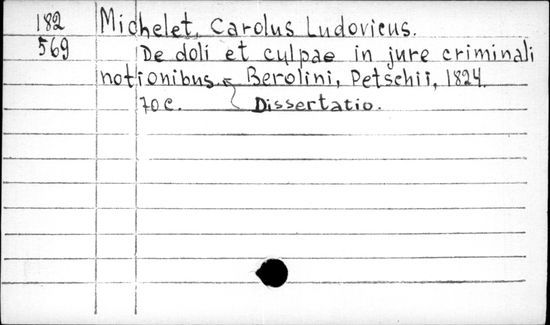 182 Michelet, Carolus Ludovicus.
569 De doli et culpae in jure criminali
notionibus. Berolini, Petschii, 1824.
70 c. Dissertatio.